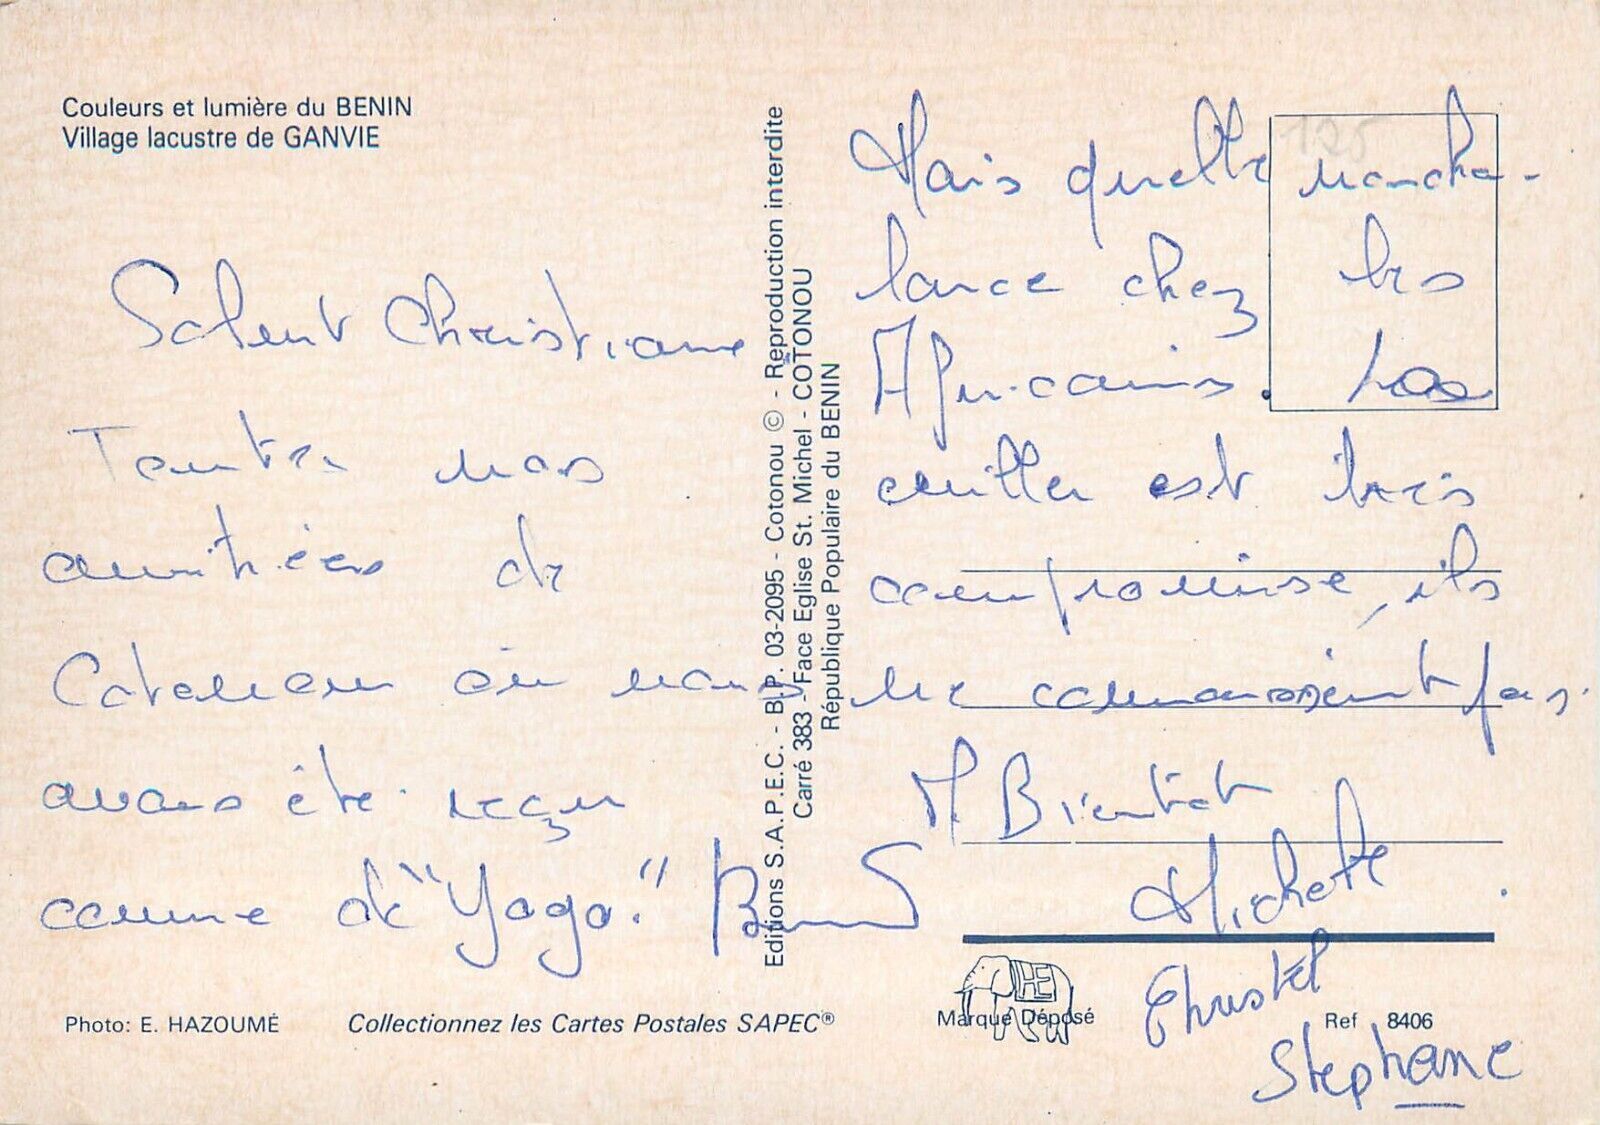 Couleurs et lumière du BENIN
Village lacustre de GANVIE
Salut Christiane
Toutes nos
amitiées de
Cotonou où nous
avons été reçu
comme de "Yago."
Editions S.A.P.E.C. - B.P. 03-2095 - Cotonou © - Reproduction interdite
Carré 383 - Face Eglise St. Michel - COTONOU
République Populaire du BENIN
125
Mais quelle noncha-
lance chez les
Africains.
est très
compromise, ils
ne connaissent pas.
A Bientôt
Michele
Christel
Stephane
Photo: E. HAZOUMÉ
Collectionnez les Cartes Postales SAPEC®
Marque Déposé
Ref 8406